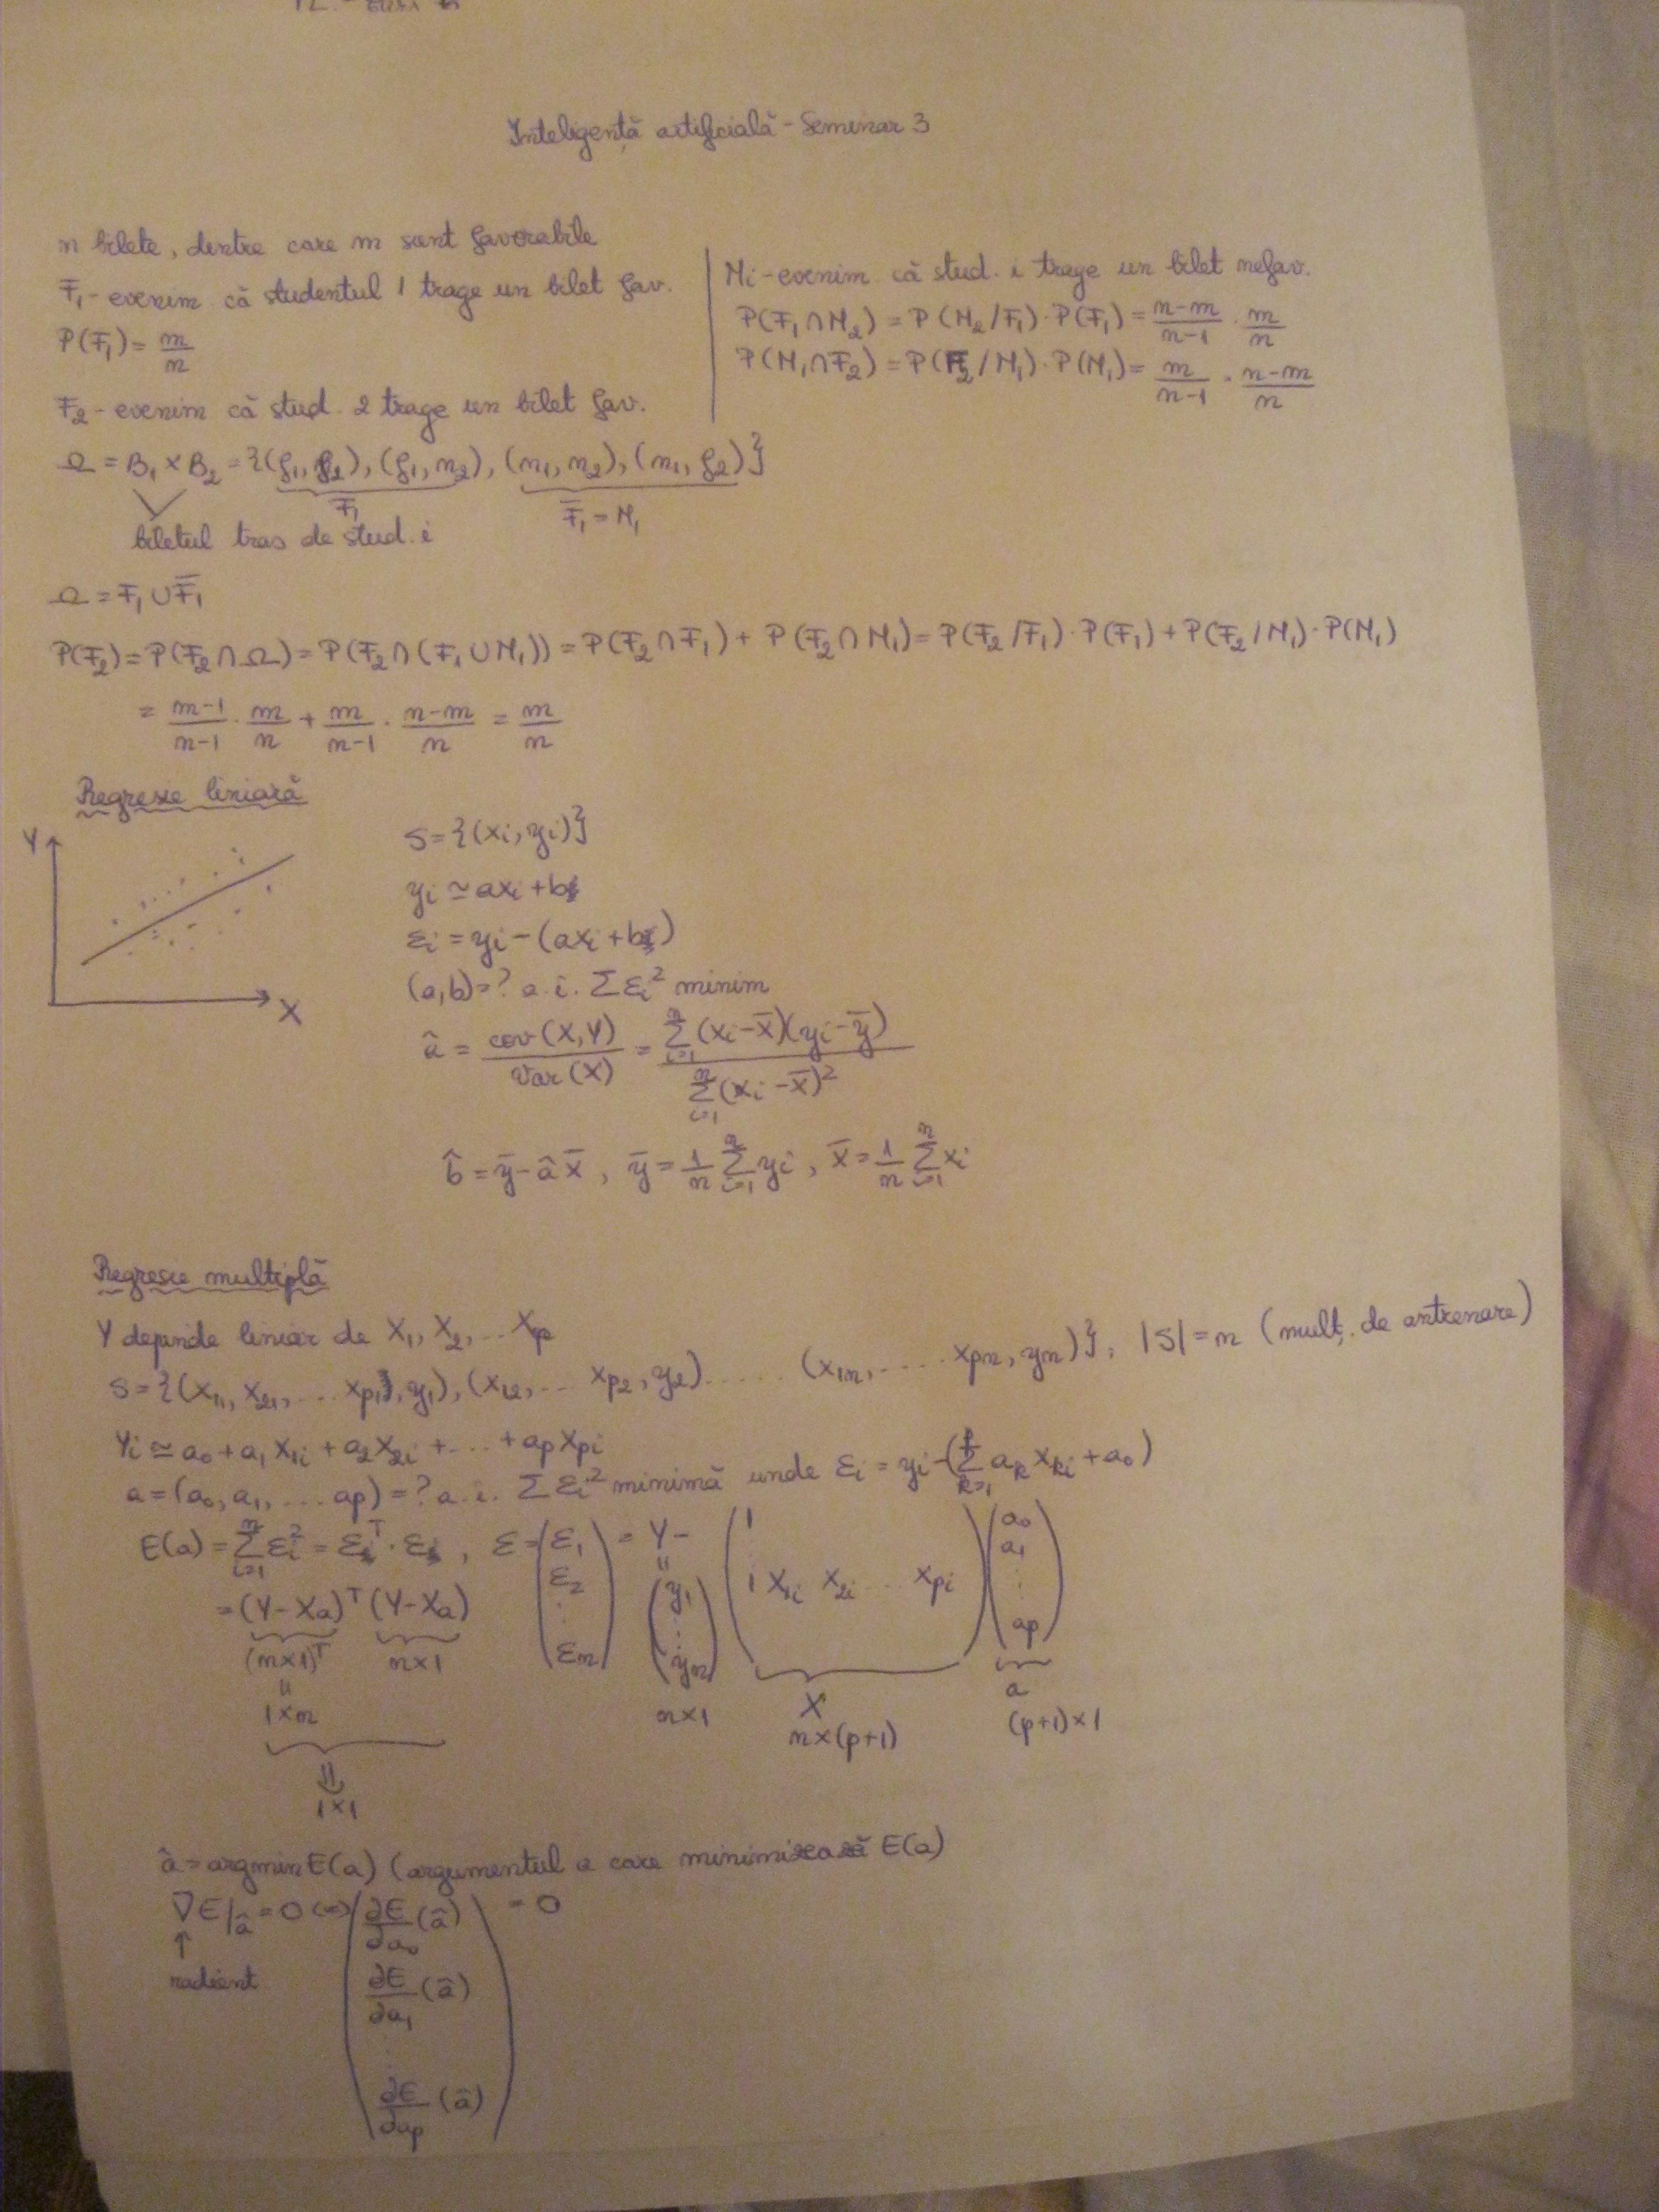 Inteligență artificială - Seminar 3
n bilete, dintre care m sunt favorabile
F₁ - evenim. că studentul 1 trage un bilet fav.
P(F₁) = m/n
F₂ - evenim că stud. 2 trage un bilet fav.
Ni - evenim că stud. i trage un bilet nefav.
P(F₁∩N₂) = P(N₂/F₁)·P(F₁) = (n-m)/(n-1) · m/n
P(N₁∩F₂) = P(F₂/N₁)·P(N₁) = m/(n-1) · (n-m)/n
Ω = B₁ × B₂ = {(f₁, f₂), (f₁, n₂), (n₁, n₂), (n₁, f₂)}
F₁
F̄₁ = N₁
biletul tras de stud. i
Ω = F₁ ∪ F̄₁
P(F₂) = P(F₂∩Ω) = P(F₂∩(F₁∪N₁)) = P(F₂∩F₁) + P(F₂∩N₁) = P(F₂/F₁)·P(F₁) + P(F₂/N₁)·P(N₁)
= (m-1)/(n-1) · m/n + m/(n-1) · (n-m)/n = m/n
Regresie liniară
Y
X
S = {(xi, yi)}
yi ≃ axi + b
εi = yi - (axi + b)
(a,b) = ? a.i. Σεi² minim
â = cov(X,Y)/Var(X) = Σⁿᵢ₌₁(xi - x̄)(yi - ȳ) / Σⁿᵢ₌₁(xi - x̄)²
b̂ = ȳ - â x̄ , ȳ = 1/n Σⁿᵢ₌₁ yi , x̄ = 1/n Σⁿᵢ₌₁ xi
Regresie multiplă
Y depinde liniar de X₁, X₂, ... Xp
S = {(x₁₁, x₂₁, .... xp₁, y₁), (x₁₂, ... xp₂, y₂) ...... (x₁n, ..... xpn, yn)}; |S| = n (mulț. de antrenare)
Yi ≃ a₀ + a₁x₁i + a₂x₂i + .... + apxpi
a = (a₀, a₁, .... ap) = ? a.i. Σεi² minimă unde εi = yi - (Σᵖₖ₌₁ aₖxₖi + a₀)
E(a) = Σⁿᵢ₌₁ εi² = εᵀ · ε , ε = (ε₁ ε₂ ⋮ εn) = Y - (1 ⋮ 1 x₁i x₂i .... xpi) (a₀ a₁ ⋮ ap)
= (Y - Xa)ᵀ (Y - Xa)
= (y₁ ⋮ yn)
(n×1)ᵀ n×1
= 1×n
n×1
X
n×(p+1)
a
(p+1)×1
⇓
1×1
â = argmin E(a) (argumentul a care minimizează E(a)
∇E|â = 0 (=) (∂E/∂a₀ (â)) = 0
↑
radient
∂E/∂a₁ (â)
∂E/∂ap (â)